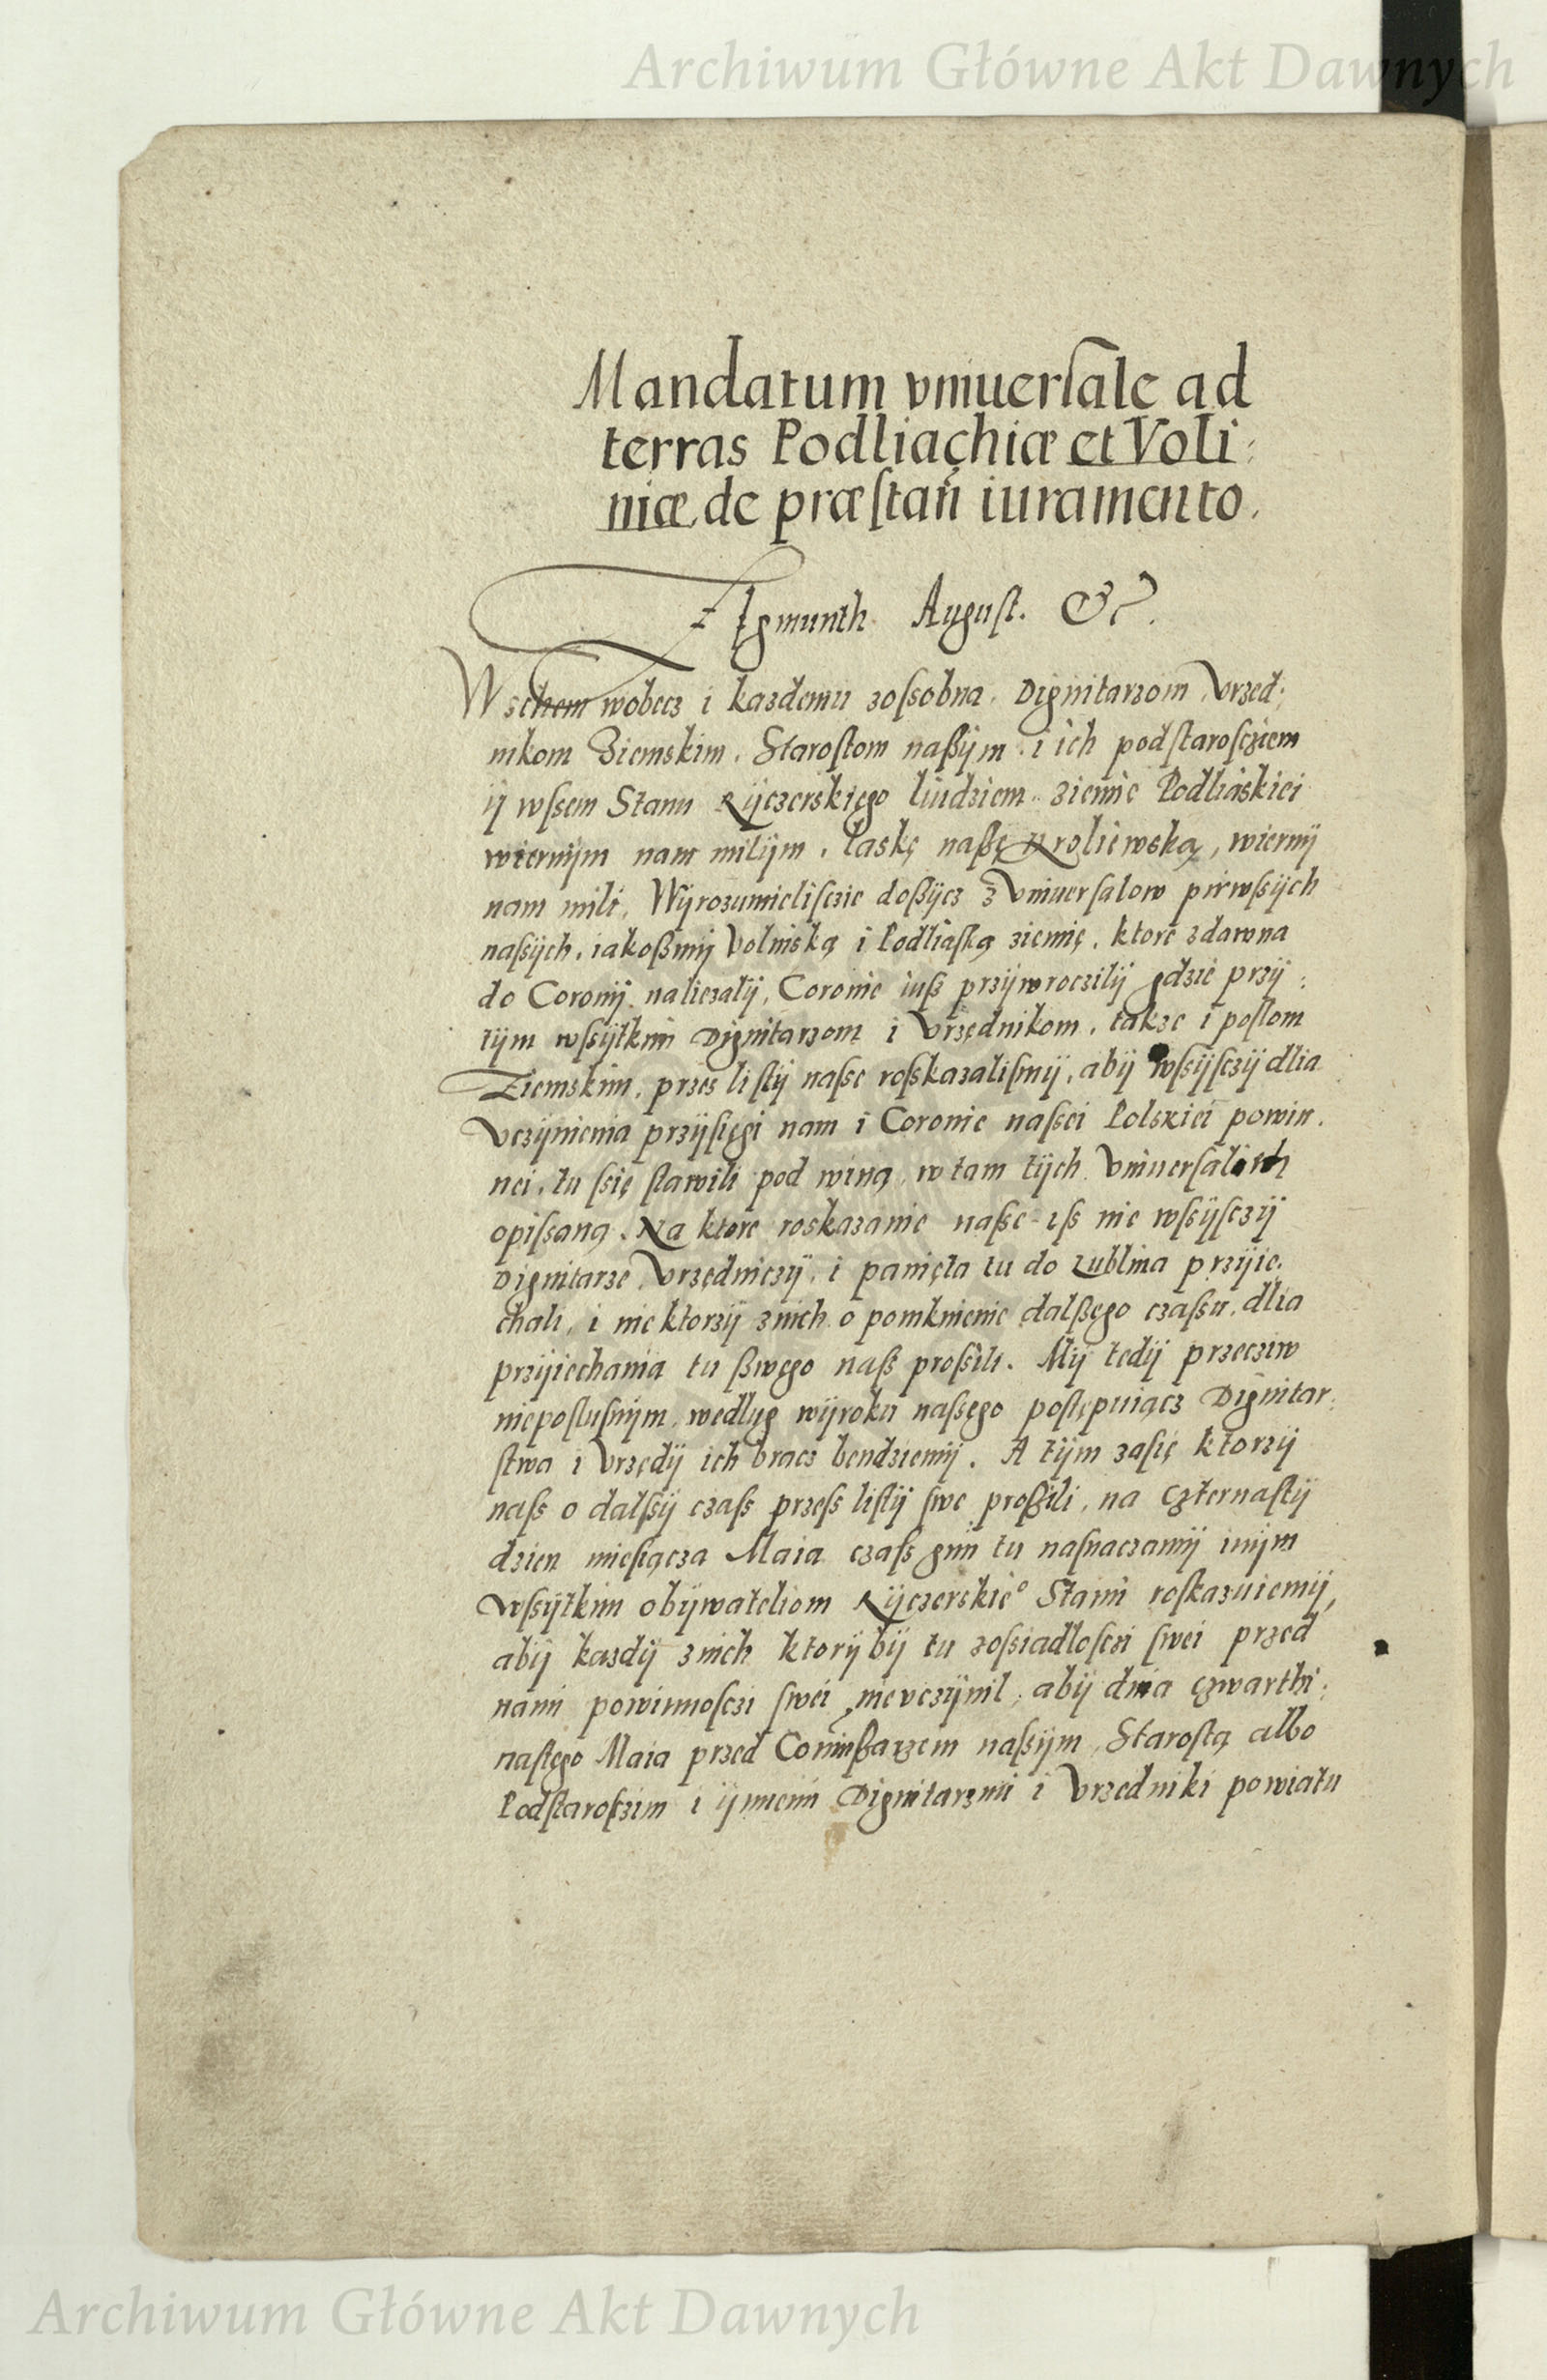 Archiwum Główne Akt Dawnych
Mandatum vniuersale ad
terras Podliachiæ et Voli:
niæ de præstañ iuramento.
Zÿgmunth August. &c.
Wschem wobecz i kazdemu zossobna. Dignitarzom, Vrzed:
nikom Ziemskim, Starostom naßÿm i ich podstarosczíem
ÿ wssem Stanu Rÿczerskięgo liudziem Ziemie Podliaskiei
wiernÿm nam milÿm, laskę naßę Kroliewską, wiernÿ
nam mili. Wÿrozumieliszcie doßÿcz z Vniuersalow pirwsÿch
nassÿch, iakoßmÿ Volinską i Podliaską ziemię, ktore zdawna
do Coronÿ naliezalÿ, Coronie iuß przÿwroczilÿ gdzie przÿ:
tÿm wsÿtkim Dignitarzom i Vrzędnikom, takze i poslom
Ziemskim, przes listÿ nasse rosskazalismÿ, abÿ wssÿsczÿ dlia
Vczÿnienia przÿsięgi nam i Coronie nassei Polskiei powin.
nei, tu ssię stawili pod winą w tam tÿch Vniuersalich
opissaną. Na ktore roskazanie nasse iss nie wssÿsczÿ
Dignitarze Vrzędniczÿ, i panięta tu do Lublina przÿie.
chali, i niektorzÿ znich o pomknienie dalßego czassu, dlia
przÿiechania tu ßwego naß prossili. Mÿ tedÿ przecziw
nieposlusnÿm, wedlug wÿroku nassego postępuiącz Dignitar:
stwa i Vrzędÿ ich bracz bendziemÿ. A tÿm zasię ktorzÿ
nass o dalssÿ czass przess listÿ swe proßili, na czternastÿ
dzien miesiącza Maia czass gim tu nasnaczamÿ inÿm
wssÿtkim obÿwateliom Rÿczerskie° Stanu roskazuiemÿ,
abÿ kazdÿ znich ktorÿ bÿ tu zossiadlosczi swei przed
nami powinnosczi swei nie vczÿnil, abÿ dnia czwarthi:
nastego Maia przed Comissarzem nassÿm, Starostą albo
Podstaroßzim i ÿnnemi Dignitarzmi i Vrzedniki powiatu
Archiwum Główne Akt Dawnych